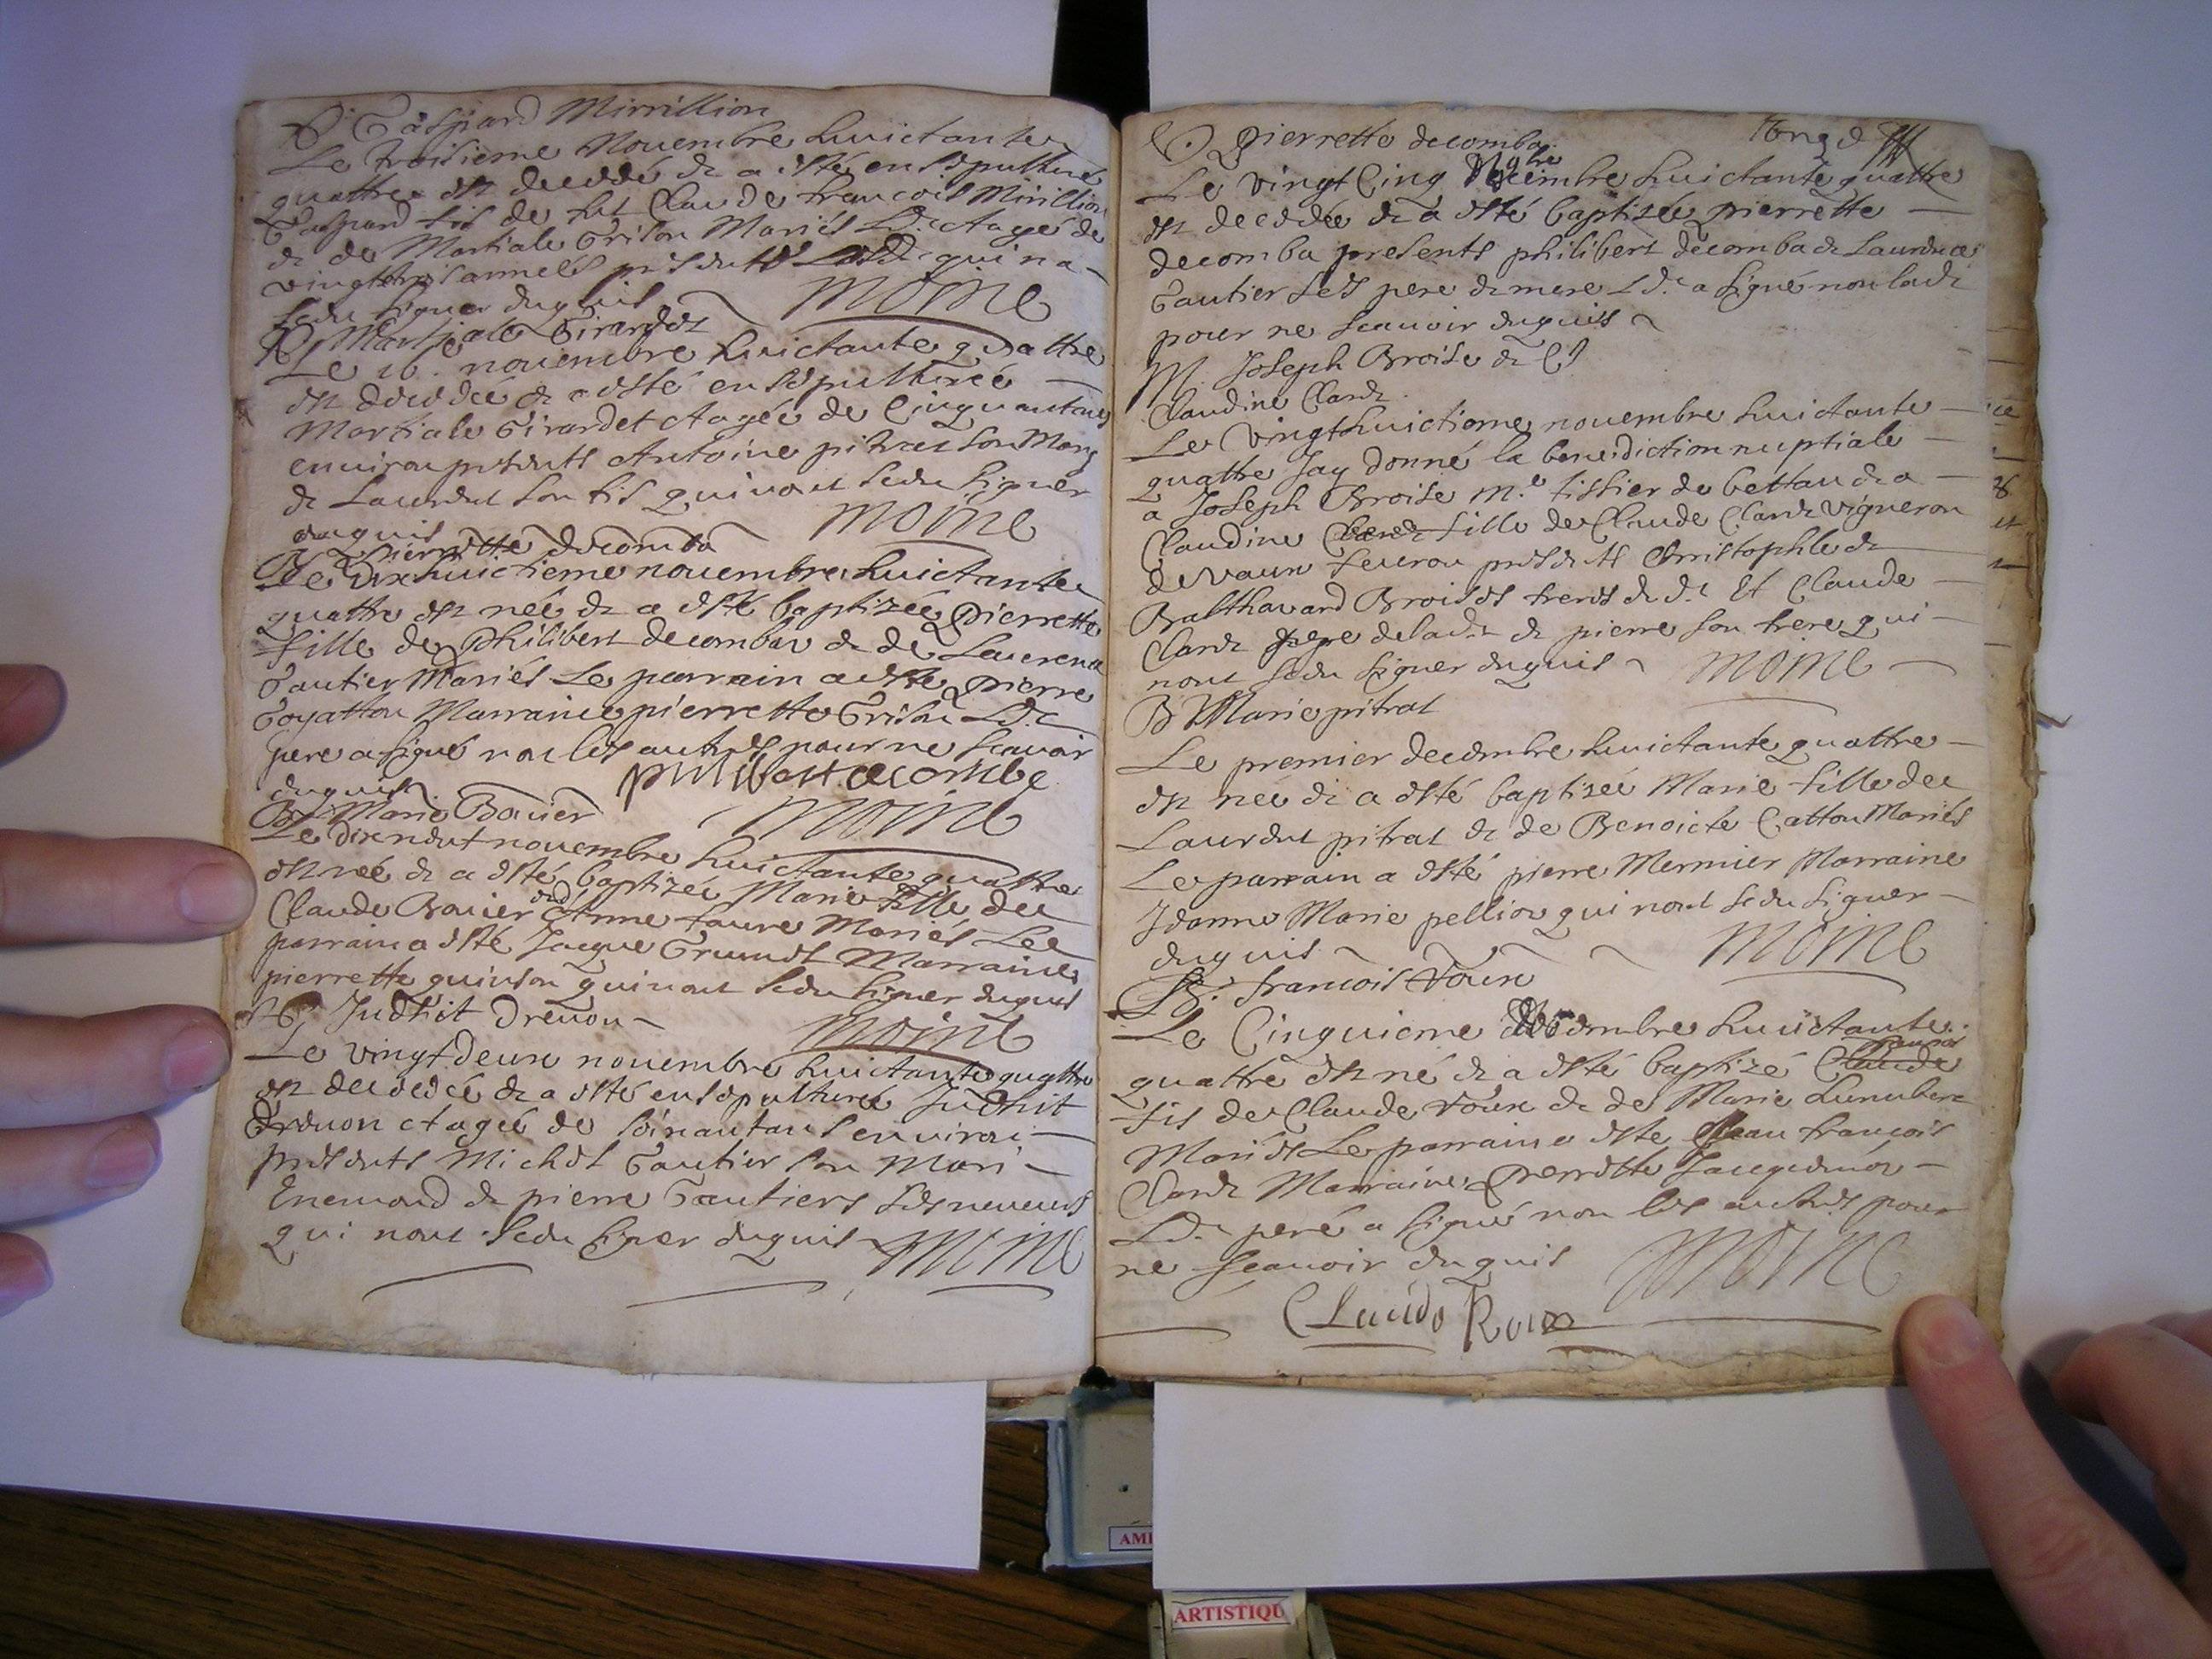 Gaspard Mirrillion
Le troisieme Nouembre huictante
quattre est decedé & a esté ensepulturé
Gaspard fis de fut Claude francois Mirillion
& de Martiale Grison Mariés Agé de
vingt trois années presents qui na
sceu signer enquis Moine
Martiale Girardet
Le 16. nouembre huictante quattre
est decedée & a esté ensepulturée
Martiale Girardet Agée de Cinquantans
enuiron presents Antoine pitrat son Mary
& Laurent son fis qui nont sceu signer
enquis Moine
B Pierrette decomba
Le Dixhuictieme nouembre huictante
quattre est née & a esté baptizée Pierrette
fille de Philibert decomba & de Laurence
Gautier Mariés Le parrain a esté Pierre
Goyatton Marraine pierrette Grison Led.
pere a signé non les autres pour ne scauoir
enquis philibert decombe
B Marie Bouier Moine
Le dixneuf nouembre huictante quattre
est née & a esté baptizée Marie fille de
Claude Bouier & d' Anne faure Mariés Le
parrain a esté Jacque Marraine
pierrette quinson qui nont sceu signer enquis
Judhit Dreuon Moine
Le vingtdeux nouembre huictante quattre
est decedée & a esté ensepulturée Judhit
Dreuon Agée de soixantans enuiron
presents Michel Gautier son Mari
Enemond & pierre Gautiers ses neueux
qui nont sceu signer enquis Moine
Pierrette decomba
Le vingt Cinq 9bre huictante quattre
est decedée & a esté baptizée pierrette
decomba presents philibert decomba & Laurence
Gautier ses pere & mere Led. a signé non lad.
pour ne scauoir enquis
M. Joseph Broise &
Claudine Clard.
Le Vingthuictieme nouembre huictante
quattre Jay donné la benediction nuptiale
a Joseph Broise m.e tissier de bettan & a
Claudine fille de Claude Clard vigneron
de Vaux feurou presents Christophle &
Balthazard Broises freres & Claude
Clard pere de lad. & pierre son frere qui
nont sceu signer enquis Moine
B Marie pitrat
Le premier decembre huictante quattre
est née & a esté baptizée Marie fille de
Laurent pitrat & de Benoicte Catton Mariés
Le parrain a esté pierre Mermier Marraine
Jeanne Marie pellion qui nont sceu signer
enquis Moine
B. francois Roux
Le Cinquieme decembre huictante
quattre est né & a esté baptizé Claude francois
fis de Claude Roux & de Marie
Mariés Le parrain a esté Jean francois
Clard Marraine Pierrette Jacquemet
Led. pere a signé non les autres pour
ne scauoir enquis Moine
Claude Roux
AMI
ARTISTIQU